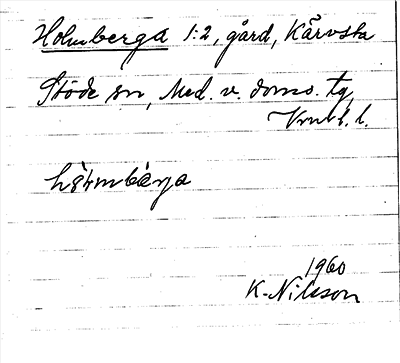 Holmberga 1:2, gård, Kärvsta
Stöde sn, Med. v. doms. tg,
Vrnl. l.
1960
K-Nilsson